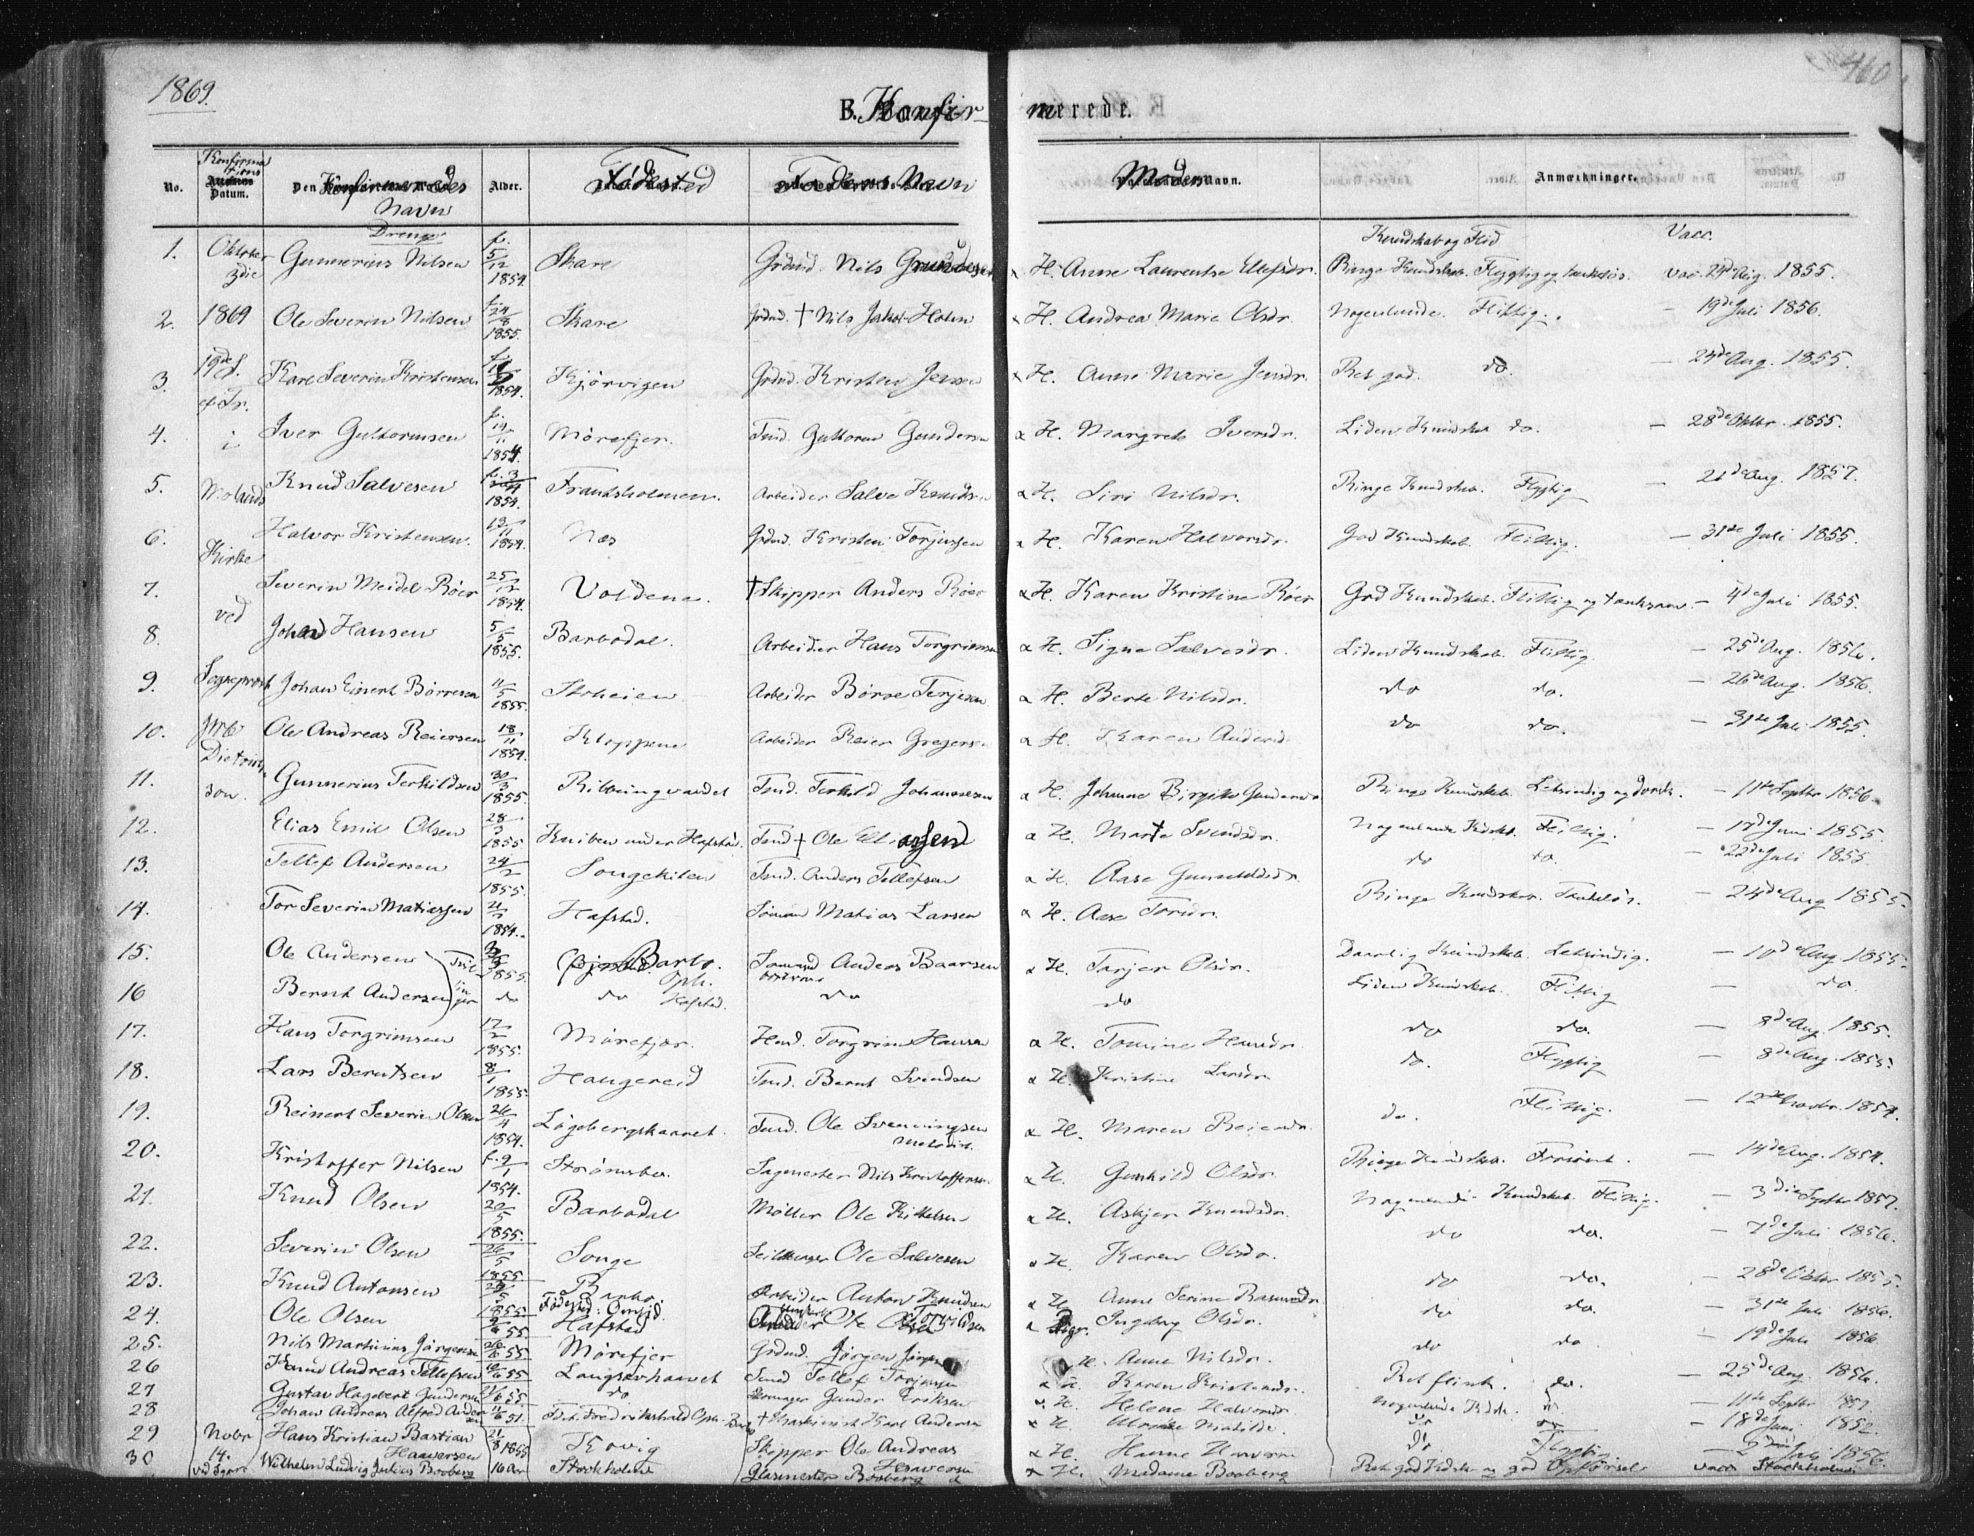 1869.
460
B. Konfir-
merede.
No.
Konfirmations
Datum.
Den Konfirmeredes
Navn
Alder.
Fødested
Faderens Navn
Moders Navn.
Anmærkninger.
Drenge
Kundskab og Flid
Vacc.
1. Oktober 3die Gunnerius Nilsen f. 5/12 1854. Skare Grdmd. Nils H. Anne Laurentse Ellefsdr. Ringe Kundskab. Flygtig og tankeløs vac. 24de Aug. 1855.
2. 1869 Ole Severin Nilsen f. 24/8 1855. Skare † Nils Jakob Holm H. Andrea Marie Olsdr. Nogenlunde. Flittig. — 19de Juli 1856.
3. 19de S. e. Tr. Karl Severin Kristensen 1854. Kjørvigen Grdmd. Kristen Jensen H. Anne Marie Jensdr. Ret god. do. — 24de Aug. 1855.
4. i Iver Guttormsen f. 19/11 1854 Mørefjer. Tmd. Guttorm Gundersen H. Margrete Iversdr. Liden Kundskab do. — 28de Oktbr. 1855.
5. Molands Knud Salvesen 1854. Frantsholmen. Arbeider Salve Knudsen H. Siri Nilsdr. Ringe Kundskab. Flygtig — 1857.
6. Kirke Halvor Kristensen. 13/11 1854. Næs Grdmd. Kristen Torjussen H. Karen Halvorsdr. God Kundskab. Flittig. — 31te Juli 1855.
7. Severin Meidel Röer 25/12 1854. Voldene. † Skipper Anders Röer H. Karen Kristine Röer God Kundskab. Flittig og tanksom — 4de Juli 1855.
8. ved Johan Hansen 5/5 1855. Barbodal. Arbeider Hans Torgrimsen H. Signe Salvesdr. Liden Kundskab. Flittig. — 25de Aug. 1856.
9. Sogneprest Johan Einert Börresen 11/5 1855. Stoheien Arbeider Börre Terjesen H. Berte Nilsdr. do do. — 26de Aug. 1856.
10. Ole Andreas Reiersen 18/11 1854. Kloppene Arbeider Reier Gregersen H. Karen do do. — 31te Juli 1855.
11. son. Gunnerius Terkildsen 30/3 1855. Tmd. Terkild Johannesen H. Johanne Birgitte Ringe Kundskab. Letsindig og doven. — 11te Septbr. 1856.
12. Elias Emil Olsen 28/3 1855 Kniben under Hafstad. Tmd. † Ole Eliassen H. Marte Svendsdr. Nogenlunde Kdskb. Flittig. — 17de Juni 1855
13. Tellef Andersen 24/2 1855. Songekilen Tmd. Anders Tellefsen H. Aase Gunnuldsdr. do do. — 22de Juli 1855.
14. Tor Severin Matiassen 1854. Hafstad. Sömand Matias Larsen H. Aase Torsdr. Ringe Kundskab. Tankeløs. — 24de Aug 1855.
15. Ole Andersen Tvillinger 1855. Barbo. Oph. Hafstad. Sömand Anders Baarsen H. Tarjer Olsdr. Daarlig Kundskab. Letsindig. — 10de Aug. 1855.
16 Bernt Andersen do do do do Liden Kundskab. Flittig — do.
17. Hans Torgrimsen 17/2 1855. Mørefjær. Tmd. Torgrim Hansen H. Tomine Hansdr. do do. — 8de Aug. 1855.
18. Lars Berntsen 8/1 1855. Haugereid Tmd. Bernt Svendsen H. Kristine Larsdr. do. Flygtig — 8de Aug. 1855.
19. Reinert Severin Olsen 26/4 1854. Lögebergskaaret. Tmd. Ole Svenningsen Metodist. H. Maren Reiersdr. do. Flittig. — 12te Novbr. 1854.
20. Kristoffer Nilsen f. 9/1 1854. Strömsbo. Sagmester Nils Kristoffersen H. Gunhild Olsdr. Ringe Kundskab. Forsömt. — 14de Aug. 1854.
21. Knud Olsen 20/5 1855. Barbodal Møller Ole Kittelsen H. Asbjer Knudsdr. Nogenlunde Kundskab. Flittig. — 3die Septbr. 1857.
22. Severin Olsen 26/5 1855 Songe Seilmager Ole Salvesen H. Karen Olsdr. do do. — 7de Juli 1856.
23. Knud Antonsen Barbo. Arbeider Anton Knudsen H. Anne Serine Rasmusdr. do do. — 28de Oktbr 1855.
24. Ole Olsen 55 Fødested: Omlid. Hafstad Ole Ingeborg Olsdr. do do. — 31te Juli 1856.
25. Nils Martinius Jørgensen 26/5 55 Mørefjer Grdmd. Jørgen H. Anne Nilsdr. do do — 19de Juli 1856
26 Knud Andreas Tellefsen 10/6 55 Langsævhaavet Tmd Tellef Torjussen H. Karen Kristensdr. Ret flink. do. — 25de Aug. 1856.
27 Gustav Hagbert Gundersen 21/6 55. do Gunder Eriksen H. Helene Halvorsdr. Nogenlunde Kdsk. do. — 11te Septbr 1857.
28 Johan Andreas Alfred Andersen 11/6 51. Fredrikshald Oph. Barbo † Maskinist Karl Andersen H. Ulrikke Matilde. do do — 18de Juni 1852.
29 Novbr 14. Hans Kristian Bastian Haaversen 21/8 1855 Tkovig Skipper Ole Andreas Haaversen H. Hanne Haaversen do Flygtig — 2den Juli 1856.
30 Wilhelm Ludvig Julius Booberg 16 Aar Stockholm Glasmester Booberg H. Madame Booberg Ret god Kdsk. og god Opførsel vacc. Stockholm.